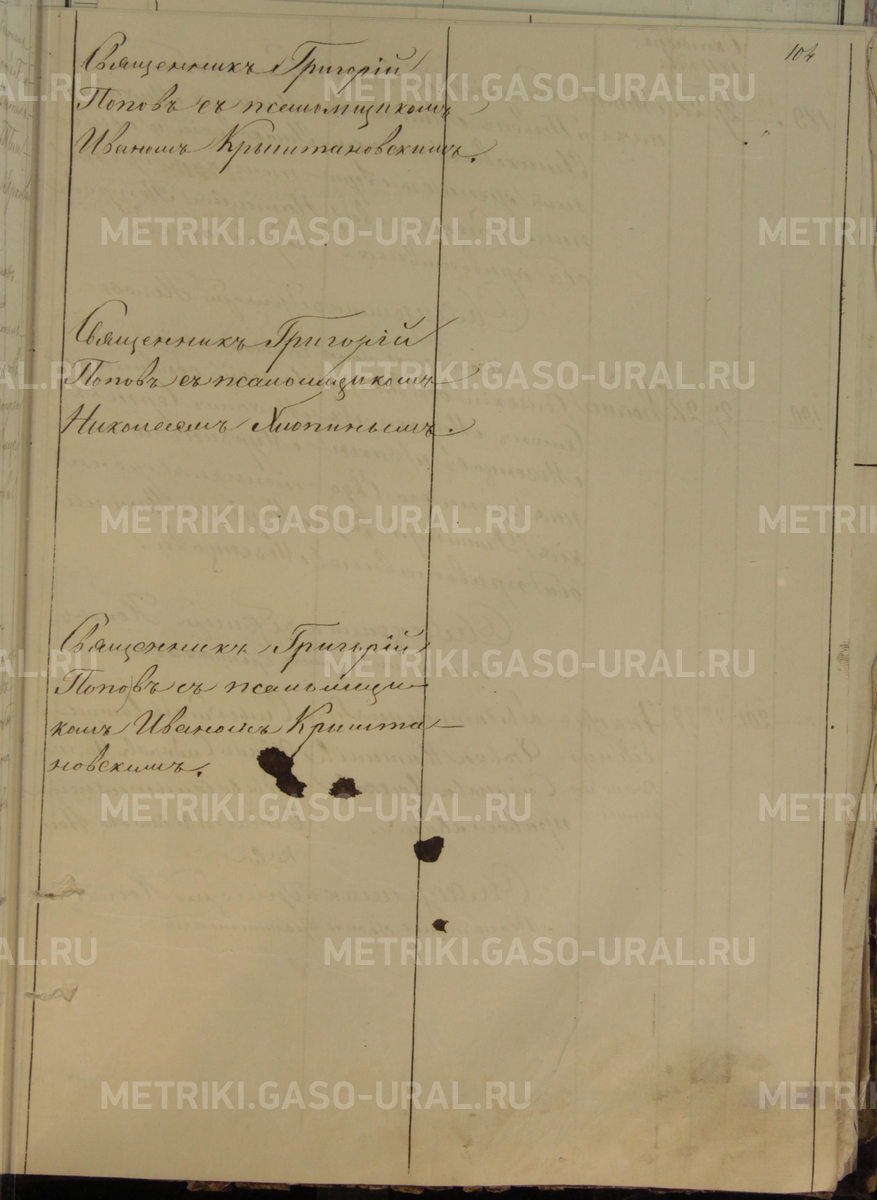 104
Священникъ Григорій
Поповъ съ псаломщикомъ
Иваномъ Крыштановскимъ.
Священникъ Григорій
Поповъ съ псаломщикомъ
Николаемъ Хлопинымъ.
Священникъ Григорій
Поповъ съ псаломщи-
комъ Иваномъ Кришта-
новскимъ.
METRIKI.GASO-URAL.RU